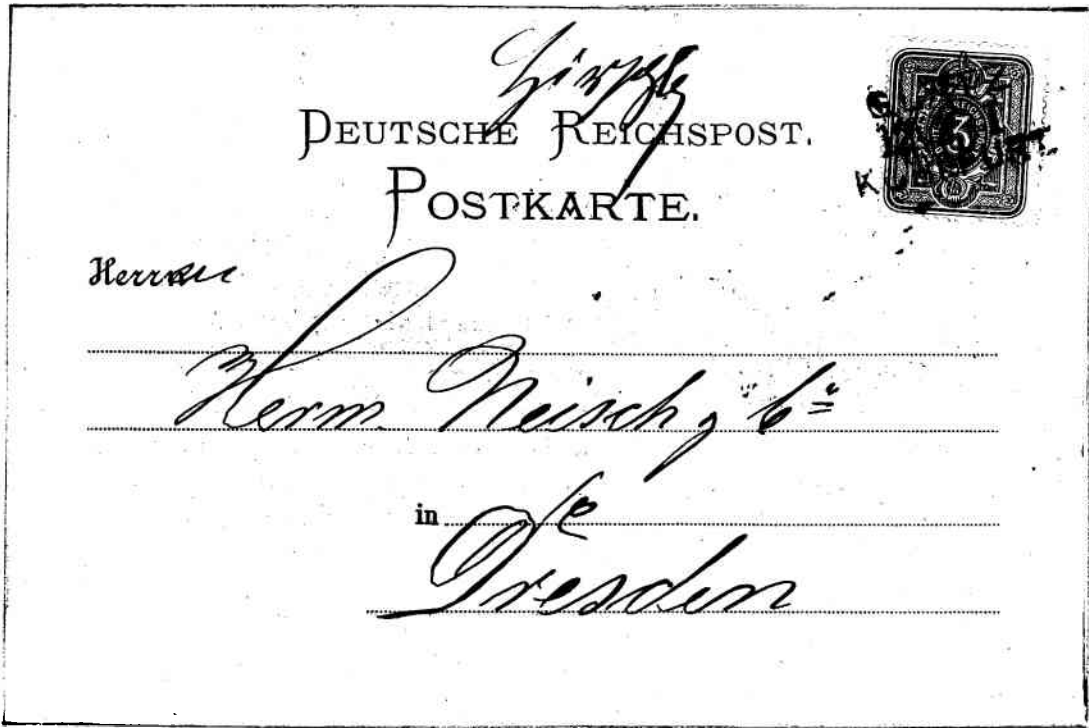 DEUTSCHE REICHSPOST.
POSTKARTE.
3
Herren
Herm. Neisch & Co
in
Dresden